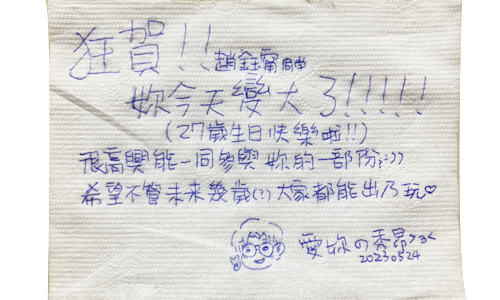 狂賀!! 趙鈺甯同學
妳今天變大了!!!!!
(27歲生日快樂啦!!)
很高興能一同參與妳的一部份:-))
希望不管未來幾歲(?)大家都能出乃玩♡
愛妳の秀昂>3<
20230524